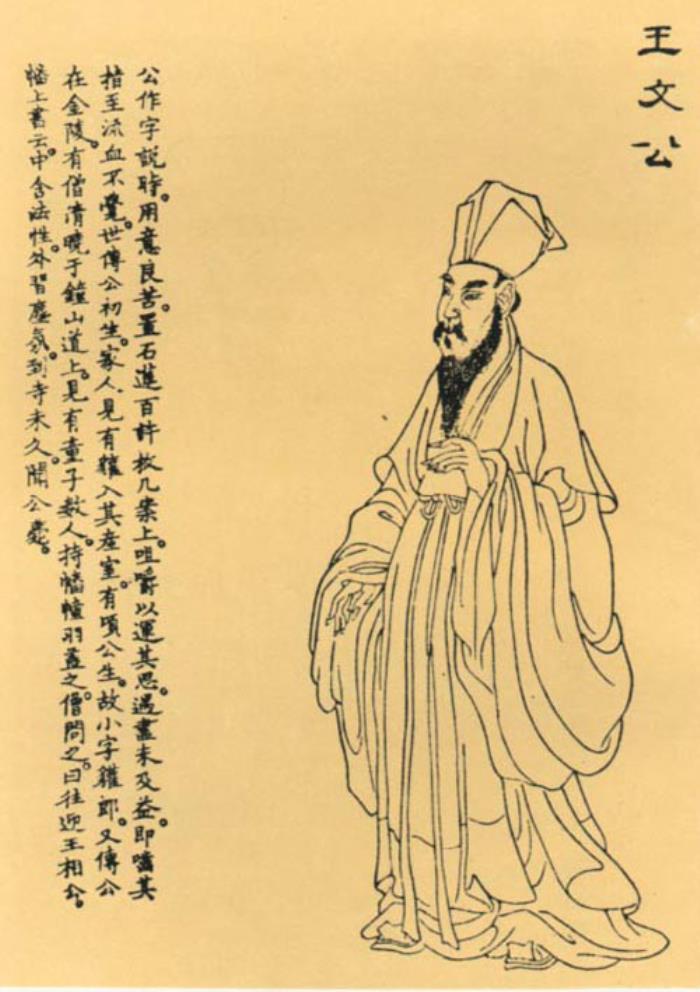 王文公
公作字說時。用意良苦。置石蓮百許枚几案上。咀嚼以運其思。遇盡未及益。即嚙其
指至流血不覺。世傳公初生。家人見有獾入其產室。有頃公生。故小字獾郎。又傳公
在金陵。有僧清曉于鐘山道上。見有童子數人。持幡幢羽蓋之僧問之。曰往迎王相公。
幡上書云。中含法性。外習塵氛。到寺未久。聞公薨。